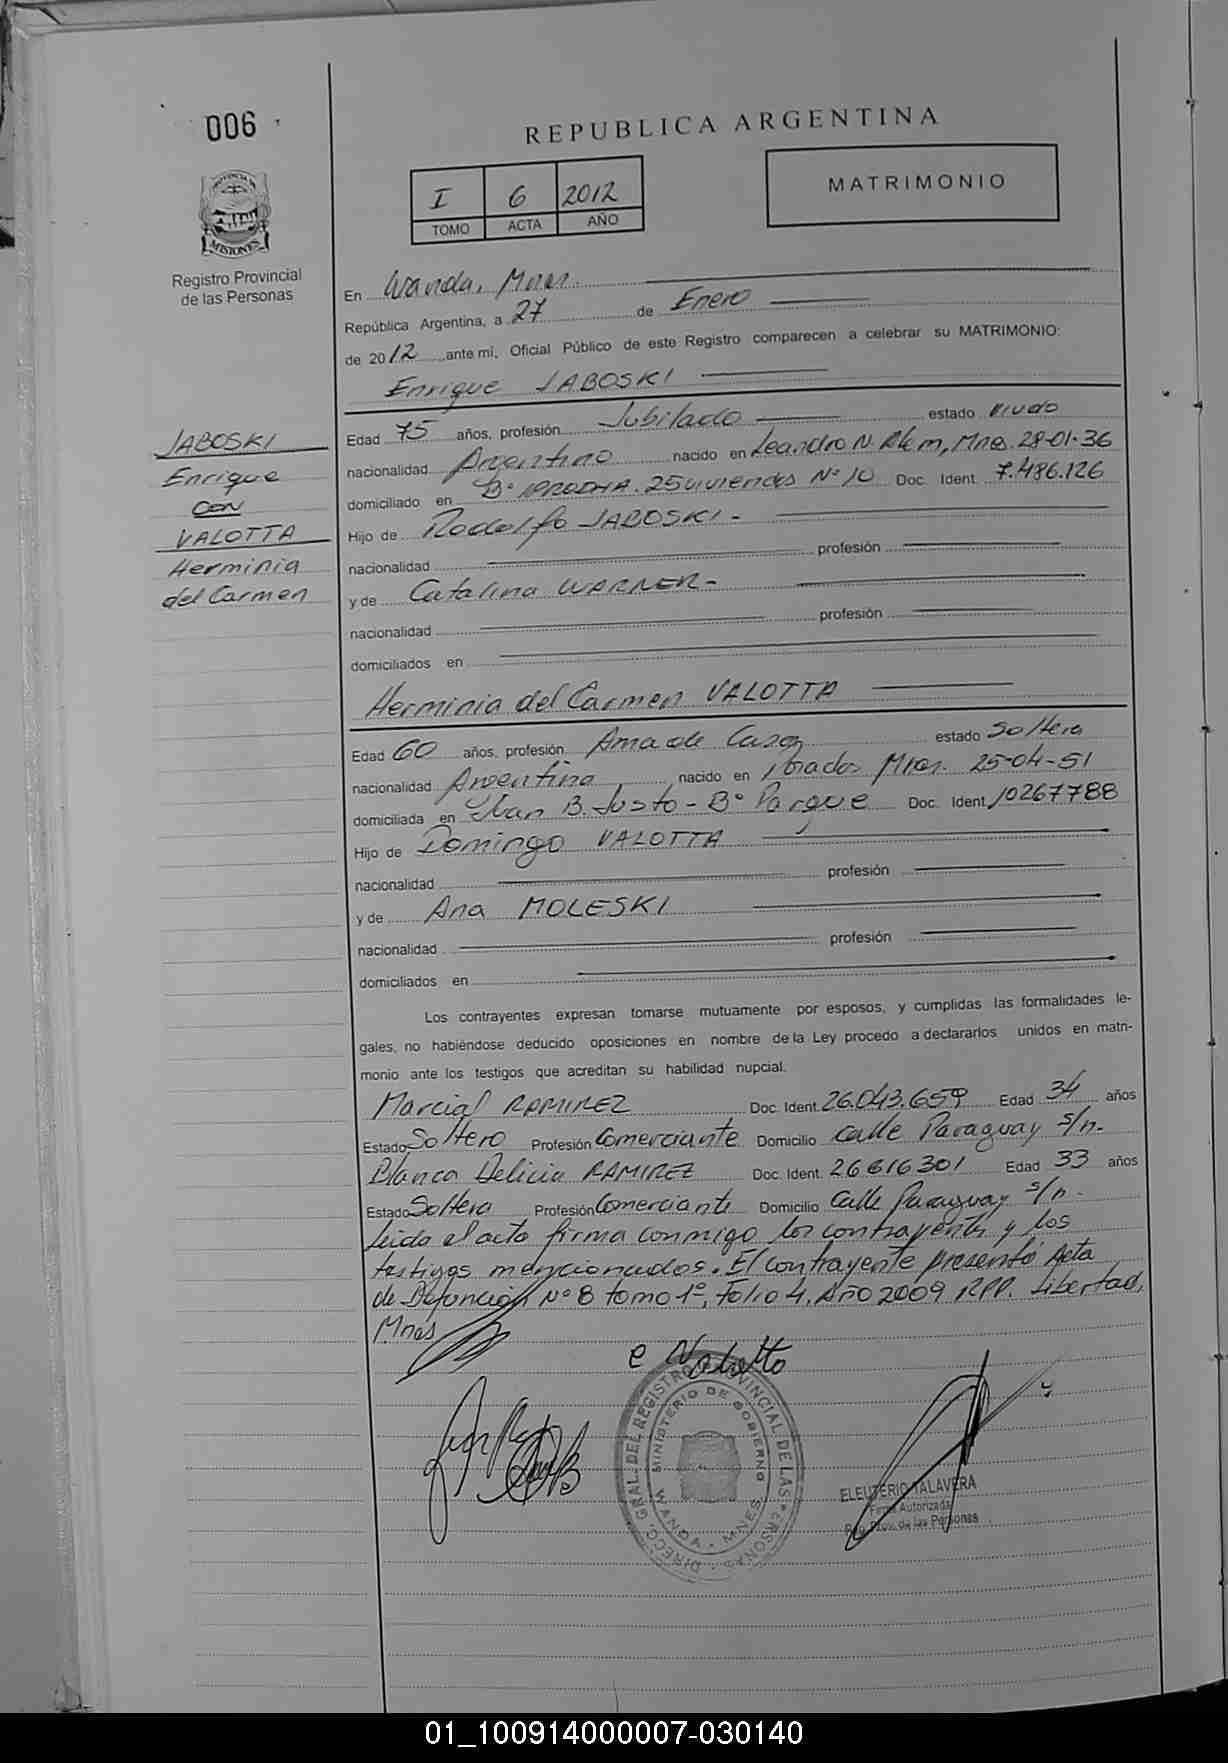 006
REPUBLICA ARGENTINA
I 6 2012
TOMO ACTA AÑO
MATRIMONIO
PROVINCIA DE
MISIONES
Registro Provincial
de las Personas
En Wanda, Mnes.
República Argentina, a 27 de Enero
de 2012 ante mi, Oficial Público de este Registro comparecen a celebrar su MATRIMONIO:
Enrique JABOSKI
JABOSKI
Enrique
CON
VALOTTA
Herminia
del Carmen
Edad 75 años, profesión Jubilado estado viudo
nacionalidad Argentino nacido en Leandro N. Alem, Mnes. 28-01-36
domiciliado en B° IPRODHA. 25 viviendas N° 10 Doc. Ident. 7.486.126
Hijo de Rodolfo JABOSKI -
nacionalidad profesión
y de Catalina WARNER -
nacionalidad profesión
domiciliados en
Herminia del Carmen VALOTTA
Edad 60 años, profesión Ama de Casa estado Soltera
nacionalidad Argentina nacido en Mnes. 25-04-51
domiciliada en Juan B. Justo - B° Parque Doc. Ident. 10267788
Hijo de Domingo VALOTTA
nacionalidad profesión
y de Ana MOLESKI
nacionalidad profesión
domiciliados en
Los contrayentes expresan tomarse mutuamente por esposos, y cumplidas las formalidades le-
gales, no habiéndose deducido oposiciones en nombre de la Ley procedo a declararlos unidos en matri-
monio ante los testigos que acreditan su habilidad nupcial.
Marcial RAMIREZ Doc. Ident. 26.043.659 Edad 34 años
Estado Soltero Profesión Comerciante Domicilio calle Paraguay s/n.
Blanca Delicia RAMIREZ Doc. Ident. 26616301 Edad 33 años
Estado Soltera Profesión Comerciante Domicilio Calle Paraguay s/n.
Leida el acta firma conmigo los contrayentes y los
testigos mencionados. El contrayente presentó Acta
de Defunción N° 8 tomo 1°, Folio 4, Año 2009 RPP. Libertad,
Mnes
DIRECC. GRAL. DEL REGISTRO PROVINCIAL DE LAS PERSONAS
MINISTERIO DE GOBIERNO
WANDA - MNES.
ELEUTERIO TALAVERA
Firma Autorizada
Reg. Prov. de las Personas
01_100914000007-030140